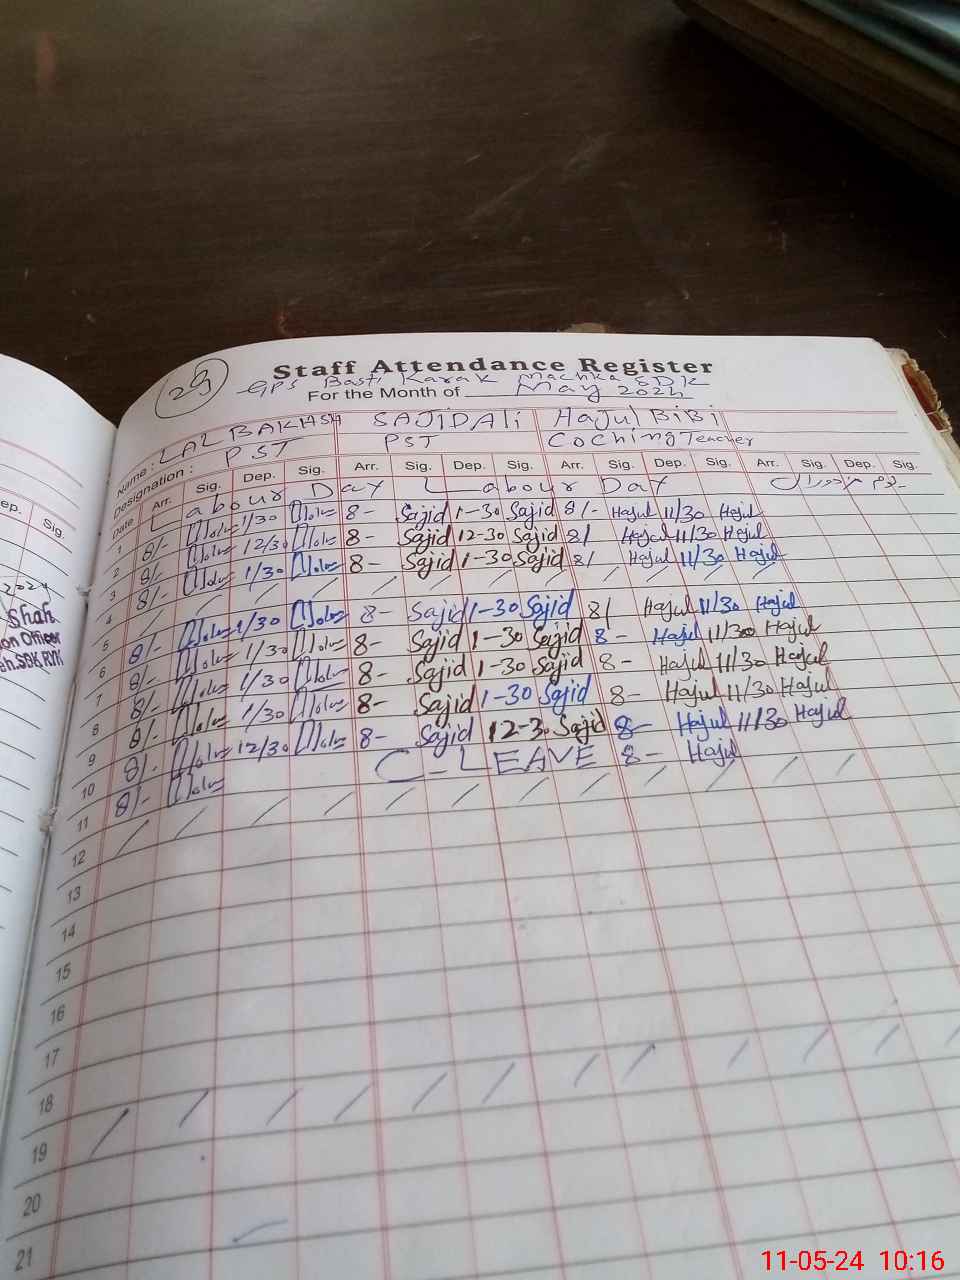 Staff Attendance Register
GPS Basti Karak Machka SDK
For the Month of May 2024
Name : LAL BAKHSH SAJiD Ali HajulBiBi
Designation : PST PST CochingTeacher
Date Arr. Sig. Dep. Sig. Arr. Sig. Dep. Sig. Arr. Sig. Dep. Sig. Arr. Sig. Dep. Sig.
1 Labour Day Labour Day
2 8/- 1/30 8- Sajid 1-30 Sajid 8/- Hajul 11/30 Hajul
3 8/- 12/30 8- Sajid 12-30 Sajid 8/ Hajul 11/30 Hajul
4 8/- 1/30 8- Sajid 1-30 Sajid 8/ Hajul 11/30 Hajul
5
6 8/- 1/30 8- Sajid 1-30 Sajid 8/ Hajul 11/30 Hajul
7 8/- 1/30 8- Sajid 1-30 Sajid 8- Hajul 11/30 Hajul
8 8/- 1/30 8- Sajid 1-30 Sajid 8- Hajul 11/30 Hajul
9 8/- 1/30 8- Sajid 1-30 Sajid 8- Hajul 11/30 Hajul
10 8/- 12/30 8- Sajid 12-30 Sajid 8- Hajul 11/30 Hajul
11 8/- C-LEAVE 8- Hajul
12
13
14
15
16
17
18
19
20
21
ep. Sig.
Shah
on Officer
eh.SDK RYK
11-05-24 10:16